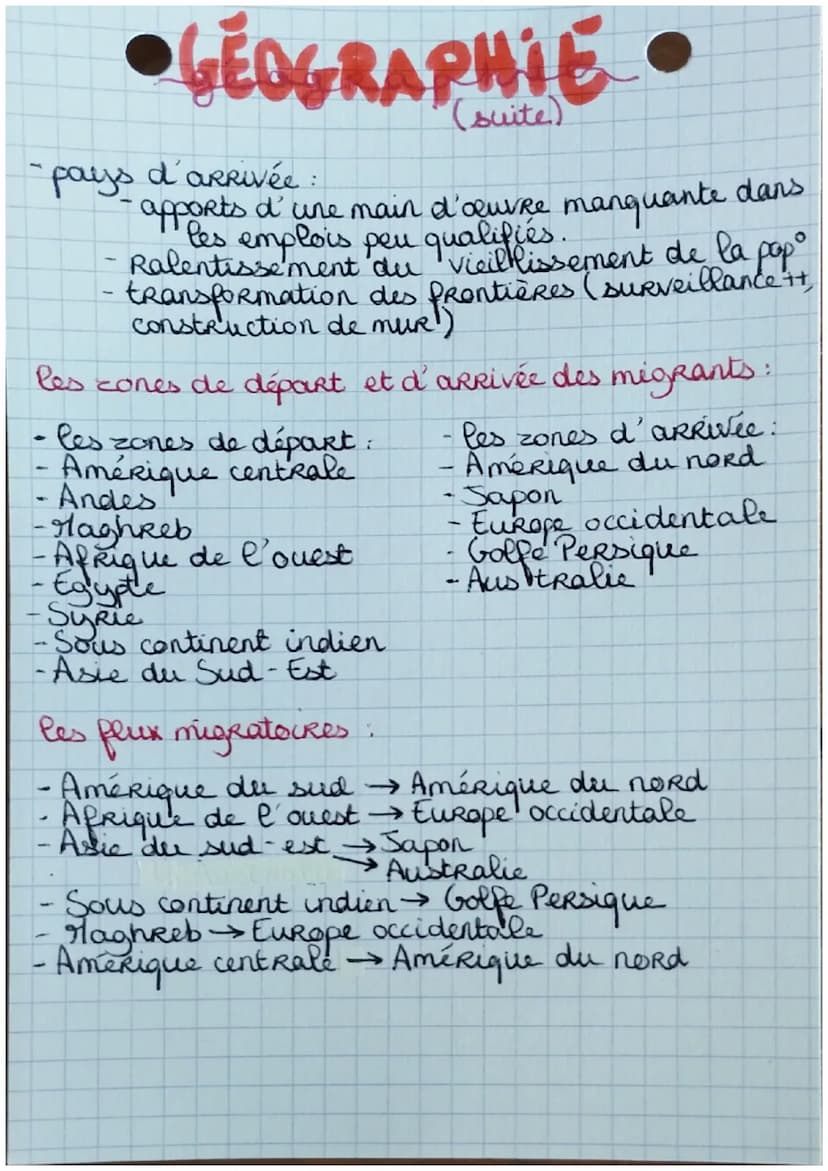 GÉOGRAPHiE
géographie
(suite)
- pays d'arrivée :
- apports d'une main d'œuvre manquante dans
les emplois peu qualifiés.
- Ralentissement du vieillissement de la pop°
- transformation des frontières (surveillance ++,
construction de mur)
les zones de départ et d'arrivée des migrants :
- les zones de départ :
- Amérique centrale
- Andes
- Maghreb
- Afrique de l'ouest
- Egypte
- Syrie
- Sous continent indien
- Asie du Sud-Est
- les zones d'arrivée :
- Amérique du nord
- Japon
- Europe occidentale
- Golfe Persique
- Australie
les flux migratoires :
- Amérique du sud → Amérique du nord
- Afrique de l'ouest → Europe occidentale
- Asie du sud-est → Japon
→ Australie
- Sous continent indien → Golfe Persique
- Maghreb → Europe occidentale
- Amérique centrale → Amérique du nord